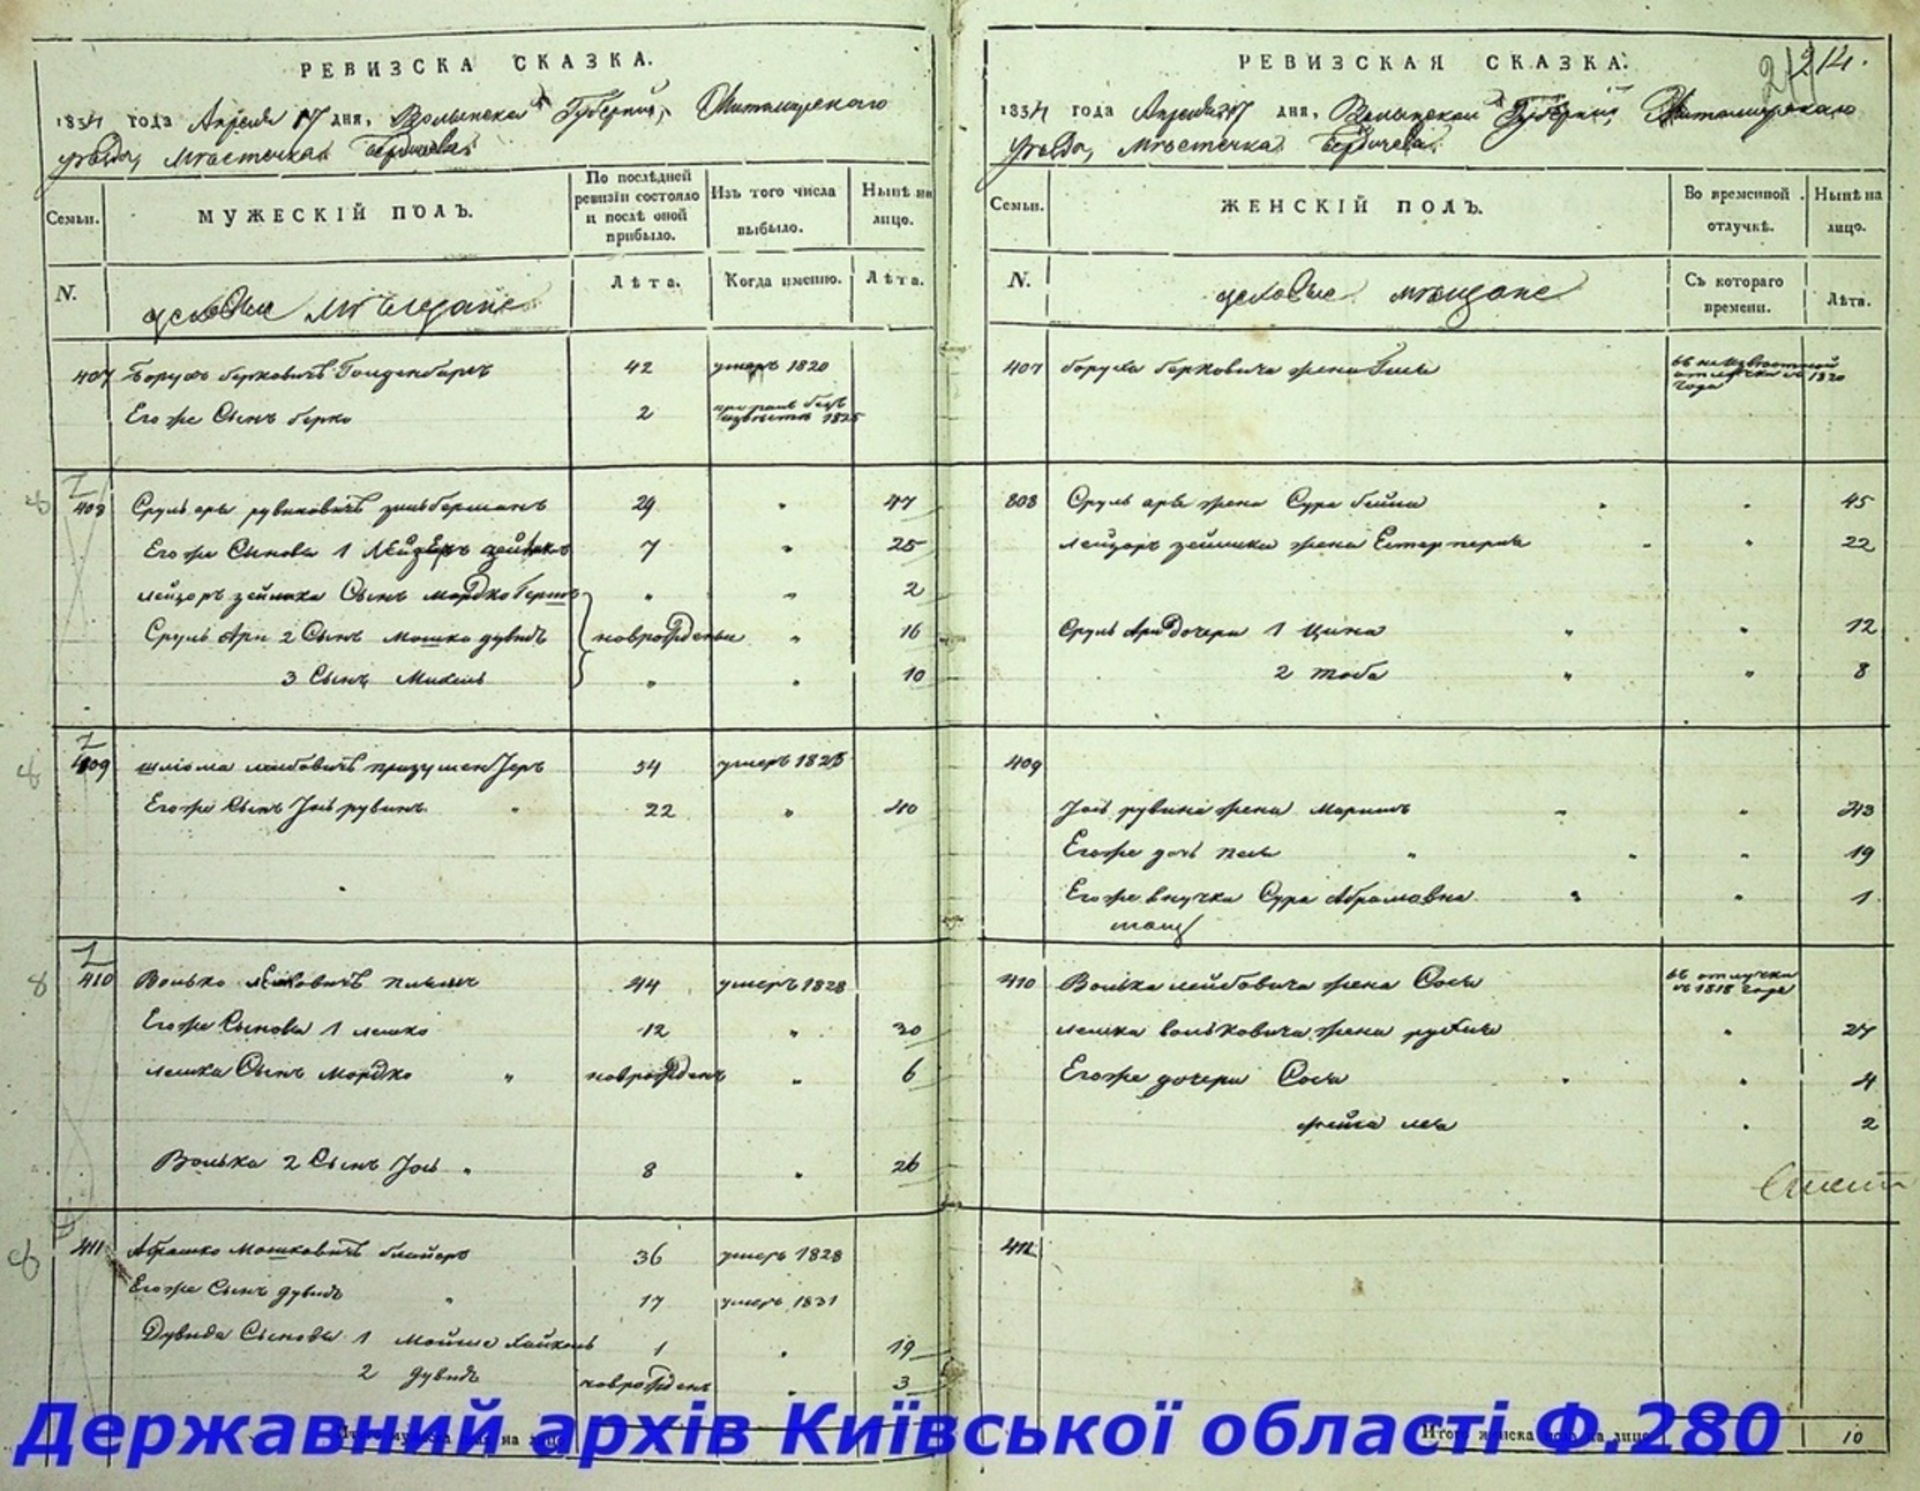 РЕВИЗСКА СКАЗКА.
1834 года Апреля 17 дня, Волынской Губернии, Житомирского
уезда, Местечка Бердичева
Семьи.
МУЖЕСКІЙ ПОЛЪ.
По послѣдней ревизіи состояло и послѣ оной прибыло.
Изъ того числа выбыло.
Нынѣ на лицо.
N.
Лѣта.
Когда именно.
Лѣта.
мѣщане
407 Борухъ Берковичъ 42 умеръ 1820
Его же Сынъ Берко 2
408 Сруль арь рувиновичъ зильберманъ 29 " 47
Его же Сыновья 1 Лейзеръ зейликъ 7 " 25
лейзоръ зейлика Сынъ Мордко Гершъ " " 2
Сруль Ари 2 Сынъ Мошко дувидъ новрожденны " 16
3 Сынъ Михель " " 10
409 шліома лейбовичъ 54 умеръ 1825
Его же Сынъ Іось рувинъ " 22 " 40
410 Волько Лейбовичъ 44 умеръ 1828
Его же Сыновья 1 лешко 12 " 30
лешка Сынъ Мордко " новрожденъ " 6
Волька 2 Сынъ Іось " 8 " 26
411 Абрашко Мошковичъ 36 умеръ 1828
Его же Сынъ дувидъ " 17 умеръ 1831
Дувида Сыновья 1 Мойше Хаикель 1 " 19
2 дувидъ новрожденъ " 3
РЕВИЗСКАЯ СКАЗКА.
214.
1834 года Апреля 17 дня, Волынской Губернии, Житомирского
уезда, Местечка Бердичева.
Семьи.
ЖЕНСКІЙ ПОЛЪ.
Во временной отлучкѣ.
Нынѣ на лицо.
N.
мѣщане
Съ котораго времени.
Лѣта.
407 Боруха Берковича жена въ неизвестной отлучки съ 1820 года
408 Сруль арь жена Сура Бейла " " 45
лейзоръ зейлика жена Естер перля " " 22
Сруль Ари дочери 1 Цина " " 12
2 Тоба " " 8
409
Іось рувина жена Маришъ " " 43
Его же дочь Песя " " " 19
Его же внучка Сура Абрамовна " " 1
410 Волька лейбовича жена Сося въ отлучки съ 1818 года
лешка вольковича жена рухля " 27
Его же дочери Сося " " 4
фейга леа " 2
411
Итого женска пола на лицо 10
Державний архів Київської області Ф.280